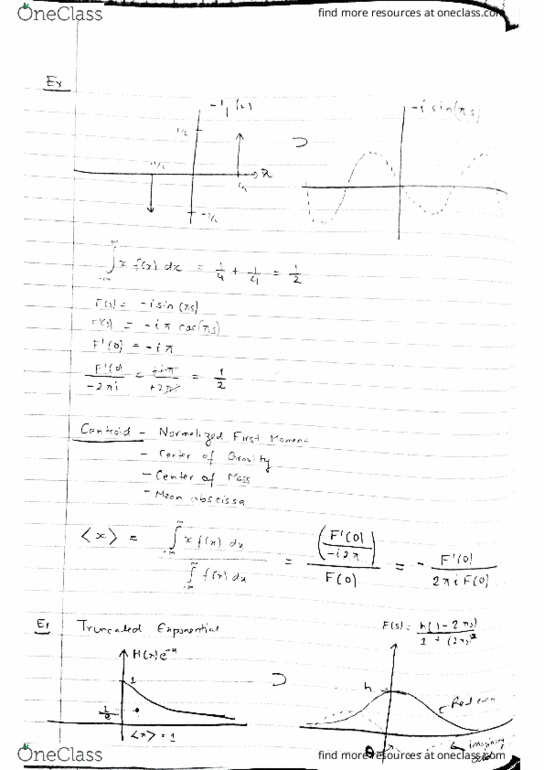 OneClass
find more resources at oneclass.com
Ex
-i sin(πs)
1/2
-1/2
x
-1/2
⊃
∫ x f(x) dx = 1/4 + 1/4 = 1/2
F(s) = -i sin(πs)
F'(s) = -iπ cos(πs)
F'(0) = -iπ
F'(0)/-2πi = -iπ/-2πi = 1/2
Centroid - Normalized First Moment
- Center of Gravity
- Center of Mass
- Mean abscissa
<x> = ∫ x f(x) dx / ∫ f(x) dx = (F'(0)/-i2π) / F(0) = - F'(0) / 2πi F(0)
Ex Truncated Exponential
H(x)e^-x
1
1/e
<x> = 1
⊃
F(s) =
h
Real even
0
OneClass
find more resources at oneclass.com